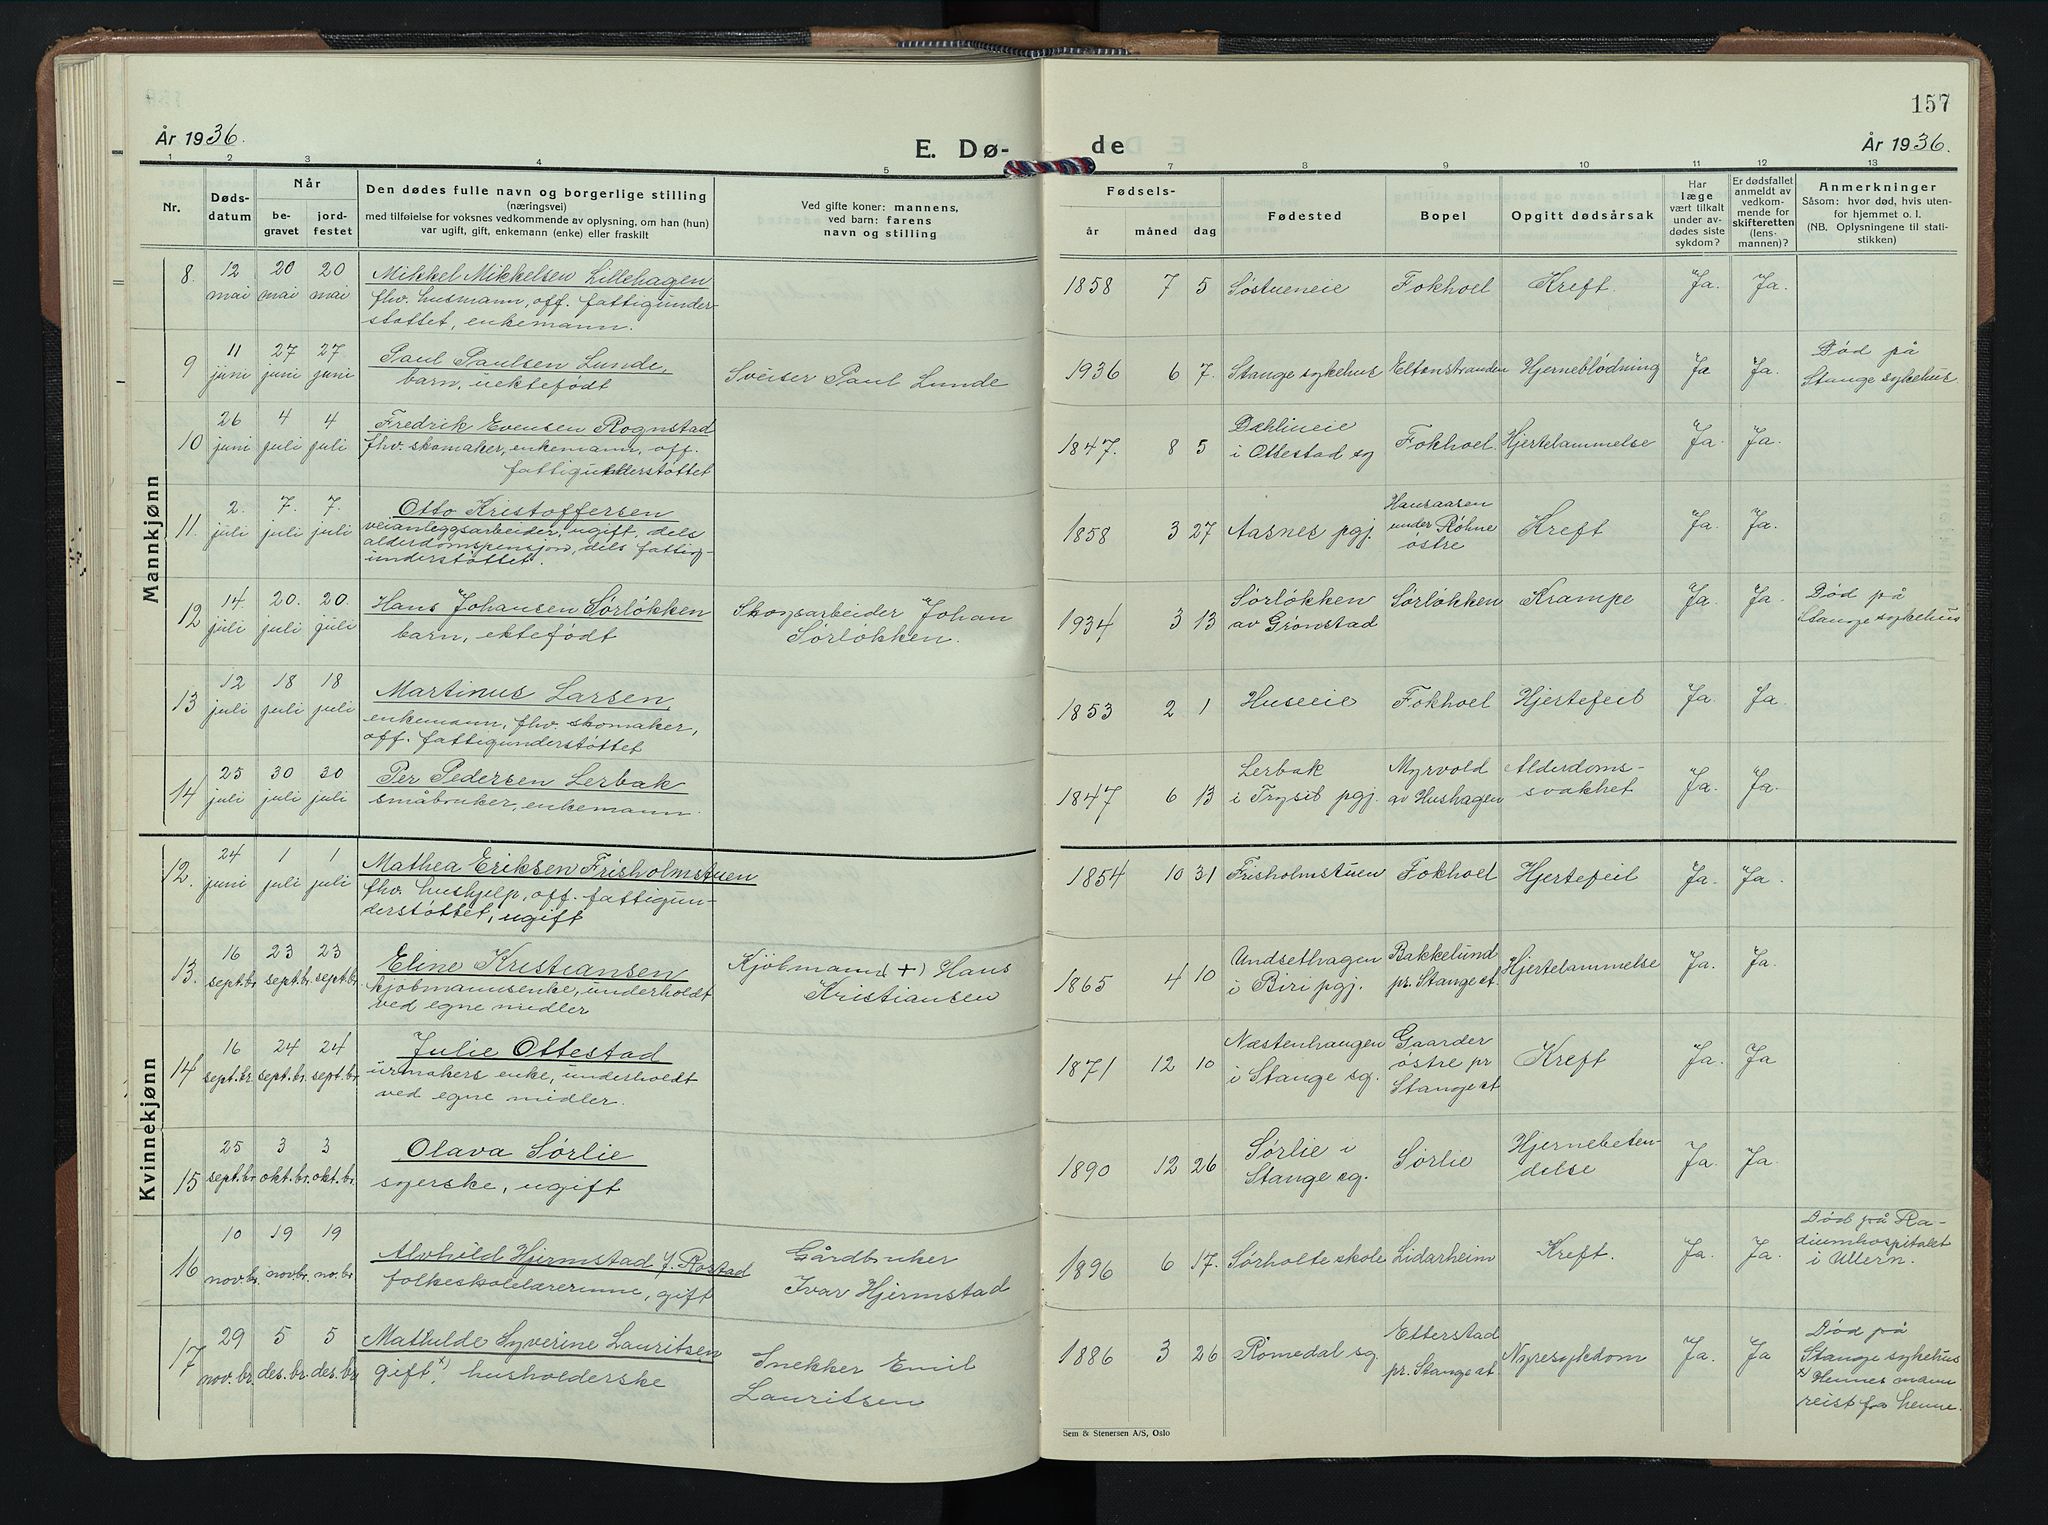 157
År 1936.
E. Dø-
de
År 1936.
1 2 3 4 5 7 8 9 10 11 12 13
Nr.
Døds-
datum
Når
be-
gravet
jord-
festet
Den dødes fulle navn og borgerlige stilling
(næringsvei)
med tilføielse for voksnes vedkommende av oplysning, om han (hun)
var ugift, gift, enkemann (enke) eller fraskilt
Ved gifte koner: mannens,
ved barn: farens
navn og stilling
Fødsels-
år måned dag
Fødested
Bopel
Opgitt dødsårsak
Har
læge
vært tilkalt
under av-
dødes siste
sykdom?
Er dødsfallet
anmeldt av
vedkom-
mende for
skifteretten
(lens-
mannen)?
Anmerkninger
Såsom: hvor død, hvis uten-
for hjemmet o. l.
(NB. Oplysningene til stati-
stikken)
Mannkjønn
8. 12 mai 20 mai 20 mai
Mikkel Mikkelsen Lillehagen
fhv. husmann, off. fattigunder-
støttet, enkemann.
1858 7 5 Søstueneie Fokhoel Kreft. Ja. Ja.
9 11 juni 27 juni 27 juni
Paul Paulsen Lunde,
barn, uektefødt
Sveiser Paul Lunde
1936 6 7. Stange sykehus Eltonstranden Hjerneblødning Ja Ja.
Død på
Stange sykehus
10 26 juni 4 juli 4 juli
Fredrik Evensen Rognstad
fhv. skomaker, enkemann, off.
fattigunderstøttet
1847. 8 5
Dæhlineie
i Ottestad sg
Fokhoel Hjertelammelse Ja. Ja.
11. 2. juli 7. juli 7. juli
Otto Kristoffersen
veianleggsarbeider, ugift, dels
alderdomspensjon, dels fattig-
understøttet.
1858 3 27 Aasnes pgj.
Hansaasen
under Røhne
østre
Kreft Ja. Ja.
12 14. juli 20. juli 20. juli
Hans Johansen Sørløkken
barn, ektefødt
Skogsarbeider Johan
Sørløkken.
1934 3 13
Sørløkken
av Grønstad
Sørløkken Krampe Ja. Ja.
Død på
Stange sykehus
13 12 juli 18 juli 18 juli
Martinus Larsen,
enkemann, fhv. skomaker,
off. fattigunderstøttet
1853 2 1 Huseie Fokhoel Hjertefeil Ja. Ja.
14 25 juli 30 juli 30 juli
Per Pedersen Lerbak
småbruker, enkemann.
1847 6 13
Lerbak
i Trysil pgj.
Myrvold
av Hushagen
Alderdoms-
svakhet
Ja. Ja.
Kvinnekjønn
12. 24 juni 1 juli 1 juli
Mathea Eriksen Frisholmstuen
fhv. hushjelp, off. fattigun-
derstøttet, ugift
1854 10 31 Frisholmstuen Fokhoel Hjertefeil Ja. Ja.
13. 16 sept.br 23 sept.br 23 sept.b
Eline Kristiansen
kjøbmannsenke, underholdt
ved egne midler
Kjøbmann (+) Hans
Kristiansen
1865 4 10
Undsethagen
i Biri pgj.
Bakkelund
pr. Stange st.
Hjertelammelse Ja. Ja.
14 16 sept.br. 24 sept.br. 24 sept.br.
Julie Ottestad
urmakers enke, underholdt
ved egne midler.
1871 12 10
Næstenhaugen
i Stange sg.
Gaarder
østre pr
Stange st
Kreft Ja. Ja
15 25 sept.br 3 okt.br. 3 okt.br.
Olava Sørlie
syerske, ugift
1890 12 26
Sørlie i
Stange sg.
Sørlie
Hjernebeten-
delse
Ja. Ja.
16 10 nov.br. 19 nov.br. 19 no.br
Alvhild Hjermstad f. Rostad
folkeskolelærerinne, gift
Gårdbruker
Ivar Hjermstad
1896 6 17. Sørholte skole Lidarheim Kreft. Ja. Ja.
Død på Ra-
diumhospitalet
i Ullern.
17 29 nov.br. 5 des.br. 5 des.br
Mathilde Syverine Lauritsen
gift x) husholderske
Snekker Emil
Lauritsen
1886 3 26 Romedal sg
Etterstad
pr. Stange st
Nyresykdom Ja. Ja
Død på
Stange sykehus
x) Hennes mann
reist fra henne.
Sem & Stenersen A/S, Oslo